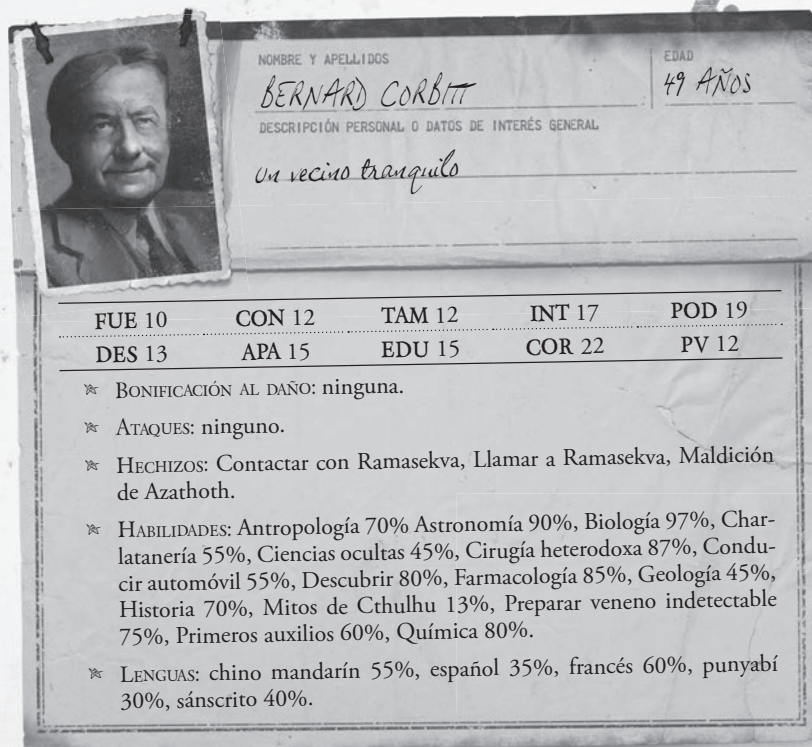 NOMBRE Y APELLIDOS
BERNARD CORBITT
EDAD
49 AÑOS
DESCRIPCIÓN PERSONAL O DATOS DE INTERÉS GENERAL
Un vecino tranquilo
FUE 10 CON 12 TAM 12 INT 17 POD 19
DES 13 APA 15 EDU 15 COR 22 PV 12
BONIFICACIÓN AL DAÑO: ninguna.
ATAQUES: ninguno.
HECHIZOS: Contactar con Ramasekva, Llamar a Ramasekva, Maldición
de Azathoth.
HABILIDADES: Antropología 70% Astronomía 90%, Biología 97%, Char-
latanería 55%, Ciencias ocultas 45%, Cirugía heterodoxa 87%, Condu-
cir automóvil 55%, Descubrir 80%, Farmacología 85%, Geología 45%,
Historia 70%, Mitos de Cthulhu 13%, Preparar veneno indetectable
75%, Primeros auxilios 60%, Química 80%.
LENGUAS: chino mandarín 55%, español 35%, francés 60%, punyabí
30%, sánscrito 40%.